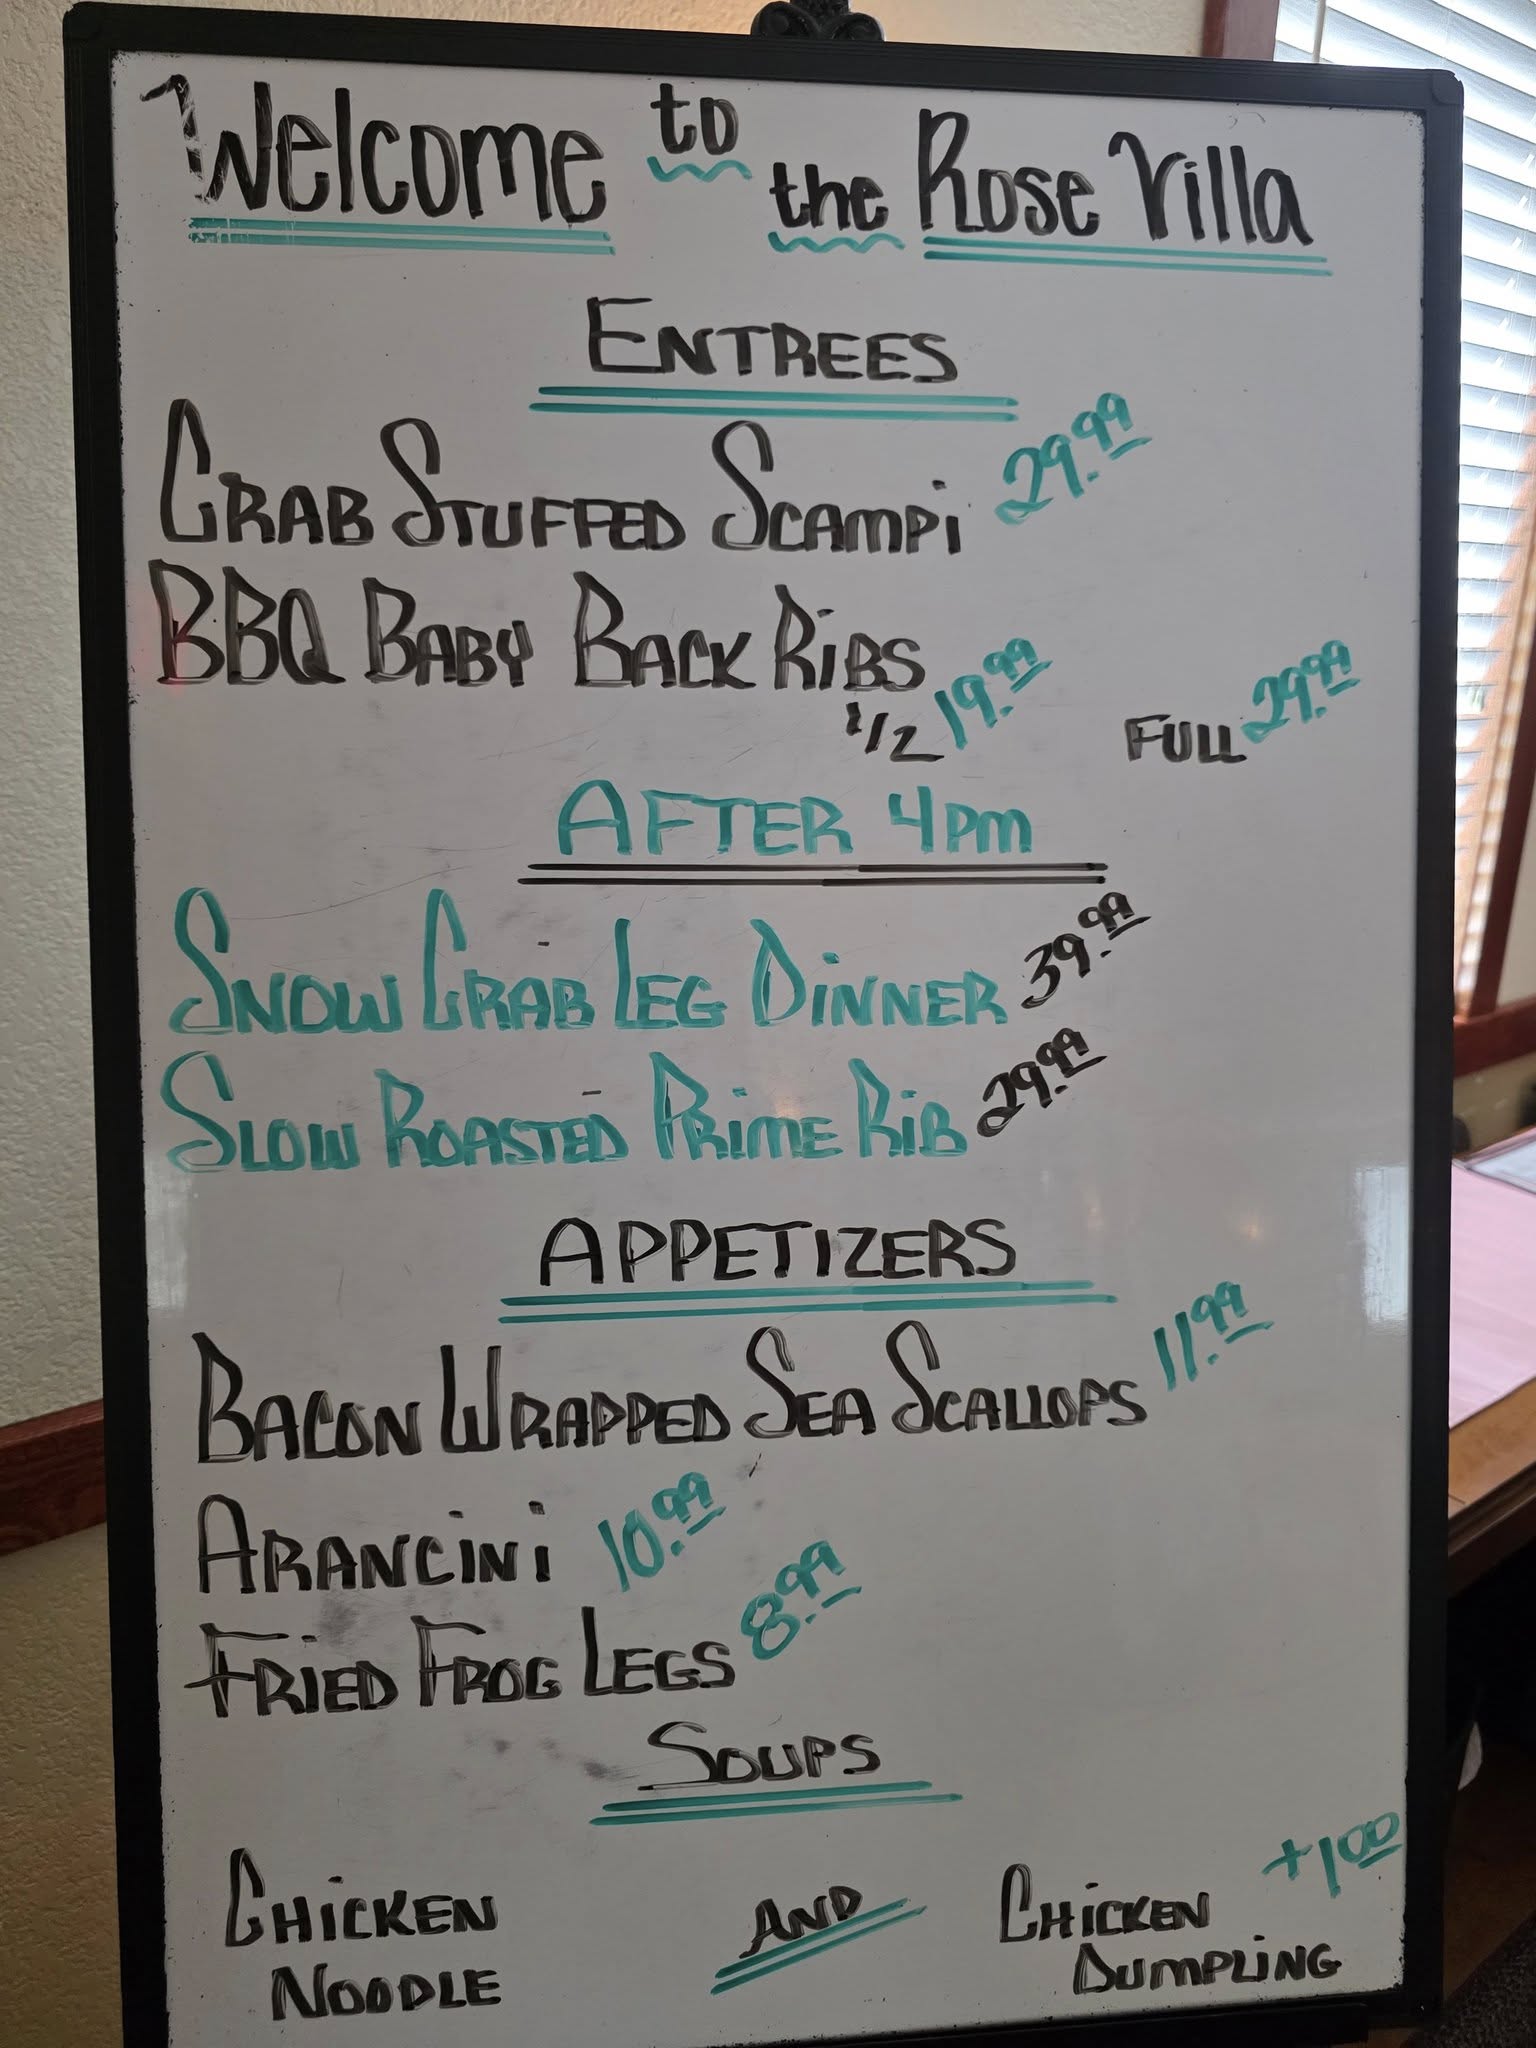 Welcome to the Rose Villa
ENTREES
CRAB STUFFED SCAMPI 29.99
BBQ BABY BACK RIBS
1/2 19.99 FULL 29.99
AFTER 4PM
SNOW CRAB LEG DINNER 39.99
SLOW ROASTED PRIME RIB 29.99
APPETIZERS
BACON WRAPPED SEA SCALLOPS 11.99
ARANCINI 10.99
FRIED FROG LEGS 8.99
SOUPS
CHICKEN NOODLE AND CHICKEN DUMPLING +1.00